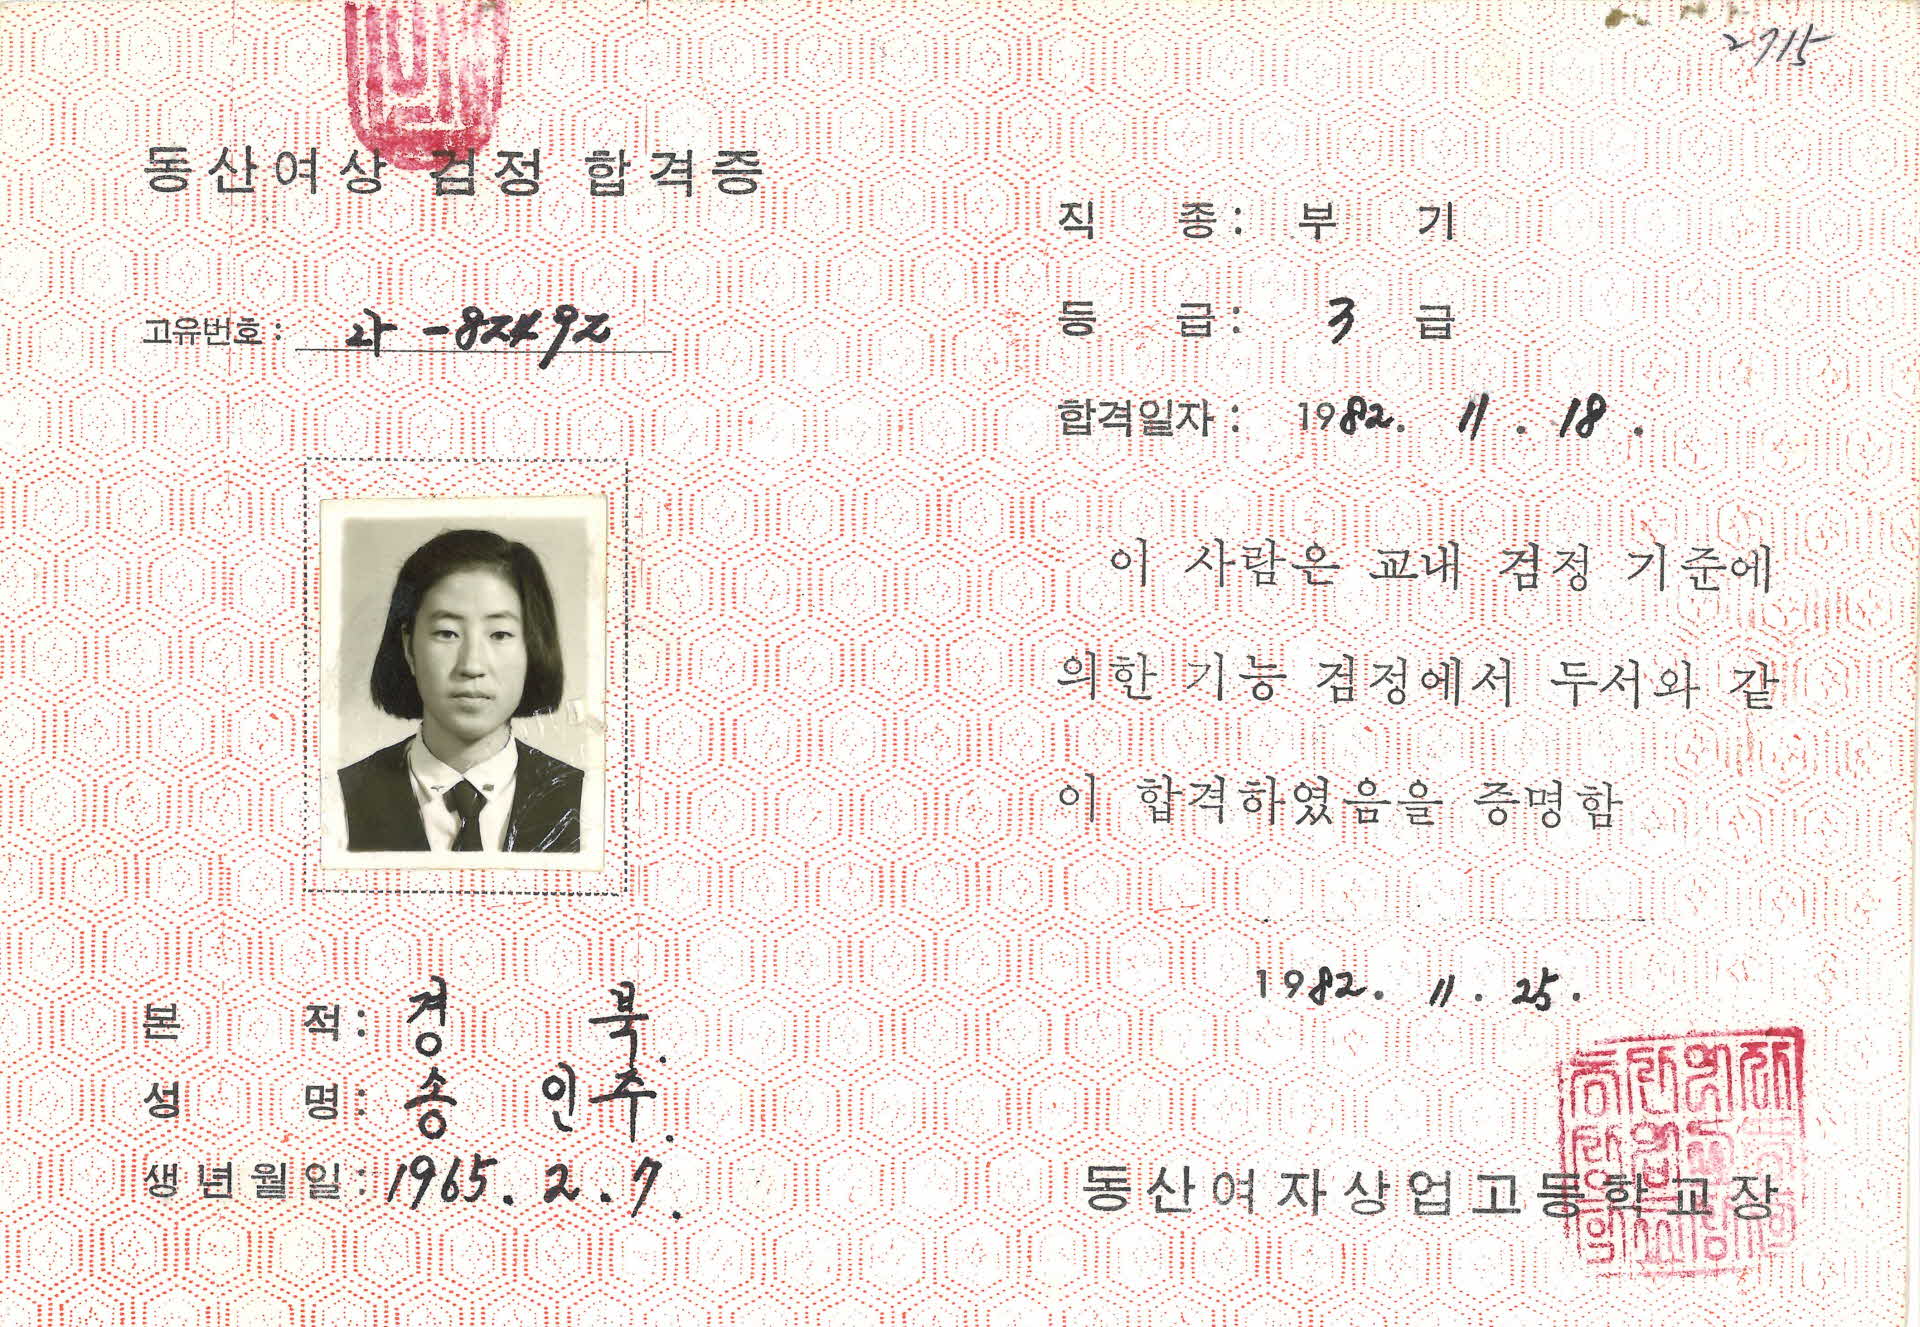 2715
동산여상 검정 합격증
고유번호 :
본 적 : 경 북.
성 명 : 송 인주.
생년월일 : 1965. 2. 7.
직 종 : 부 기
등 급 : 3 급
합격일자 : 1982. 11. 18.
이 사람은 교내 검정 기준에
의한 기능 검정에서 두서와 같
이 합격하였음을 증명함
1982. 11. 25.
동산여자상업고등학교장